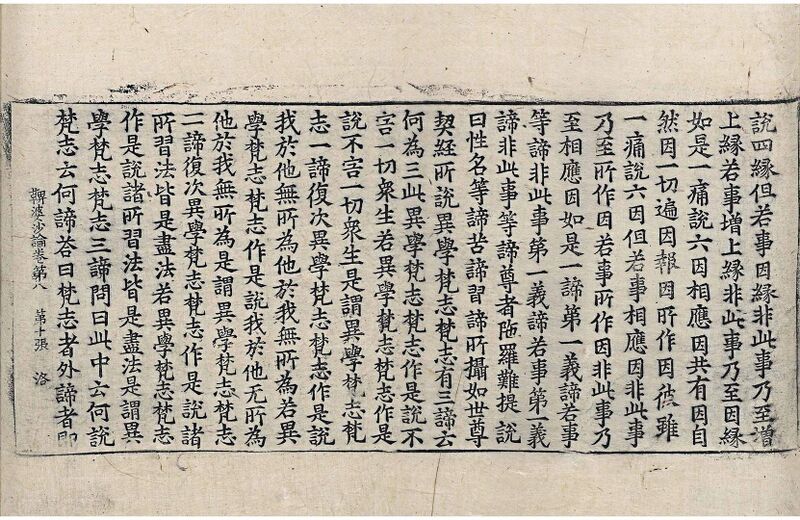 說四緣但若事因緣非此事乃至增
上緣若事增上緣非此事乃至因緣
如是一痛說六因相應因共有因自
然因一切遍因報因所作因彼雖
一痛說六因但若事相應因非此事
乃至所作因若事所作因非此事乃
至相應因如是一諦第一義諦若事
等諦非此事第一義諦若事第一義
諦非此事等諦尊者陁羅難提說
曰性名等諦苦諦習諦所攝如世尊
契經所說異學梵志梵志有三諦云
何為三此異學梵志梵志作是說不
害一切衆生若異學梵志梵志作是
說不害一切衆生是謂異學梵志梵
志一諦復次異學梵志梵志作是說
我於他無所為他於我無所為若異
學梵志梵志作是說我於他无所為
他於我無所為是謂異學梵志梵志
二諦復次異學梵志梵志作是說諸
所習法皆是盡法若異學梵志梵志
作是說諸所習法皆是盡法是謂異
學梵志梵志三諦問曰此中云何說
梵志云何諦荅曰梵志者外諦者即
鞞婆沙論卷第八 第十張 洛